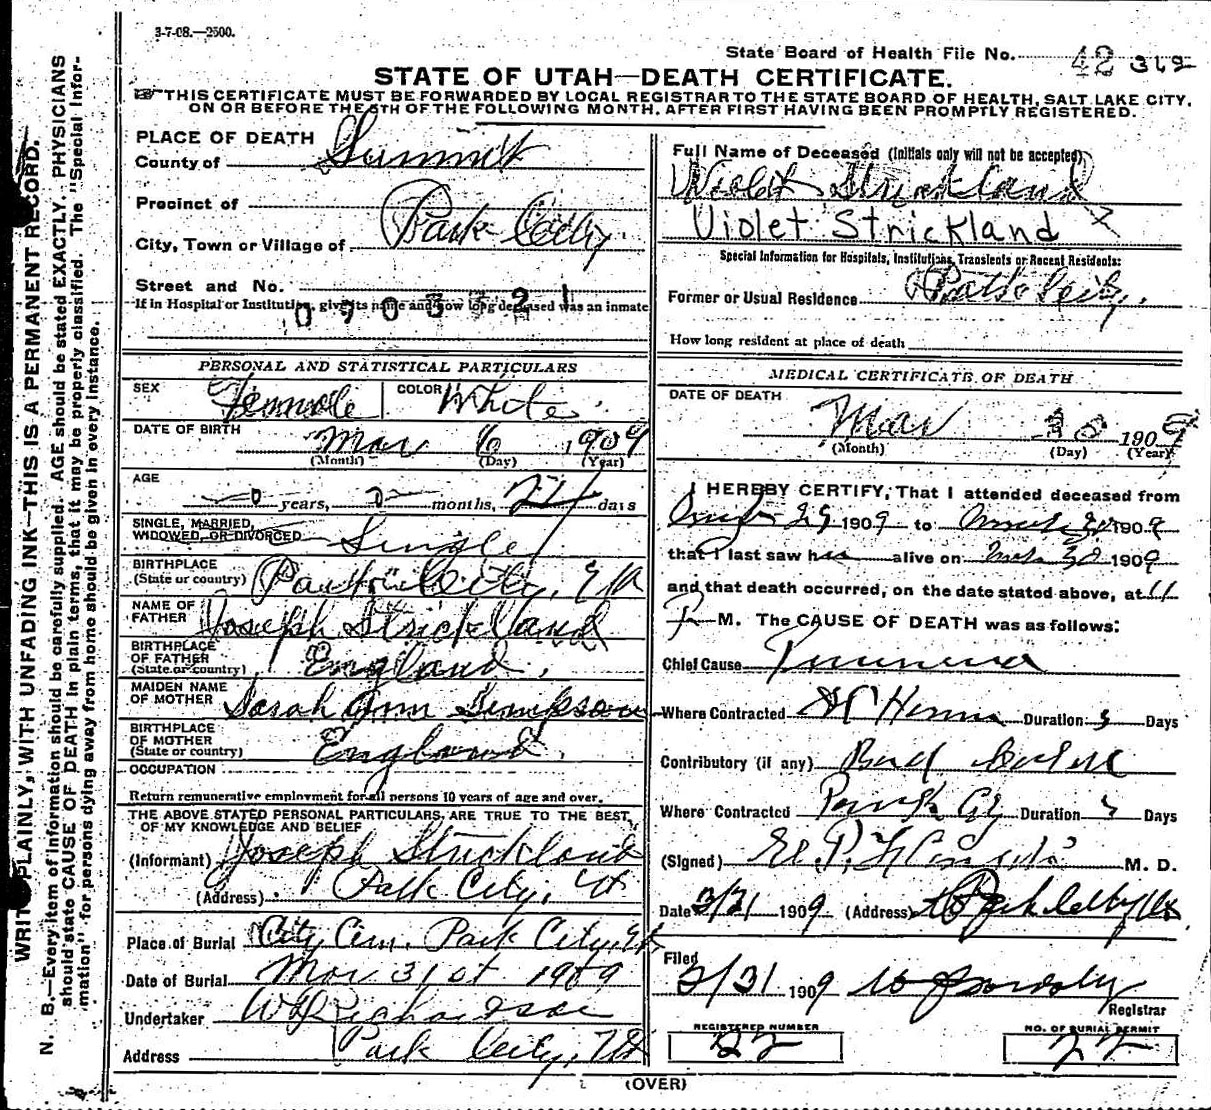 3-7-08.—2500.
State Board of Health File No. 42 362
STATE OF UTAH—DEATH CERTIFICATE.
THIS CERTIFICATE MUST BE FORWARDED BY LOCAL REGISTRAR TO THE STATE BOARD OF HEALTH, SALT LAKE CITY,
ON OR BEFORE THE 5TH OF THE FOLLOWING MONTH, AFTER FIRST HAVING BEEN PROMPTLY REGISTERED.
WRITE PLAINLY, WITH UNFADING INK—THIS IS A PERMANENT RECORD.
N. B.—Every item of information should be carefully supplied. AGE should be stated EXACTLY. PHYSICIANS
should state CAUSE OF DEATH in plain terms, that it may be properly classified. The "Special Infor-
mation" for persons dying away from home should be given in every instance.
PLACE OF DEATH
County of Summit
Precinct of
City, Town or Village of Park City
Street and No.
If in Hospital or Institution, give its name and how long deceased was an inmate
PERSONAL AND STATISTICAL PARTICULARS
SEX Female COLOR White
DATE OF BIRTH Mar 6 1909
(Month) (Day) (Year)
AGE 0 years, 0 months, 24 days
SINGLE, MARRIED,
WIDOWED, OR DIVORCED Single
BIRTHPLACE
(State or country) Park City,
NAME OF
FATHER Joseph Strickland
BIRTHPLACE
OF FATHER
(State or country) England
MAIDEN NAME
OF MOTHER Sarah Ann Simpson
BIRTHPLACE
OF MOTHER
(State or country) England
OCCUPATION
Return remunerative employment for all persons 10 years of age and over.
THE ABOVE STATED PERSONAL PARTICULARS ARE TRUE TO THE BEST
OF MY KNOWLEDGE AND BELIEF
(Informant) Joseph Strickland
(Address) Park City, Ut
Place of Burial City Cem. Park City, Ut
Date of Burial Mar 31st 1909
Undertaker W Richardson
Address Park City, Ut
Full Name of Deceased (Initials only will not be accepted)
Violet Strickland
Violet Strickland
Special Information for Hospitals, Institutions, Transients or Recent Residents:
Former or Usual Residence Park City,
How long resident at place of death
MEDICAL CERTIFICATE OF DEATH
DATE OF DEATH
Mar 30 1909
(Month) (Day) (Year)
I HEREBY CERTIFY, That I attended deceased from
29 1909 to March 30 1909
that I last saw her alive on Mch 30 1909
and that death occurred, on the date stated above, at 11
P M. The CAUSE OF DEATH was as follows:
Chief Cause Pneumonia
Where Contracted At Home Duration 3 Days
Contributory (if any) Bad
Where Contracted Park City Duration Days
(Signed) M. D.
Date 3/31 1909 (Address) Park City Ut
Filed
3/31 1909
Registrar
REGISTERED NUMBER
22
NO. OF BURIAL PERMIT
22
(OVER)